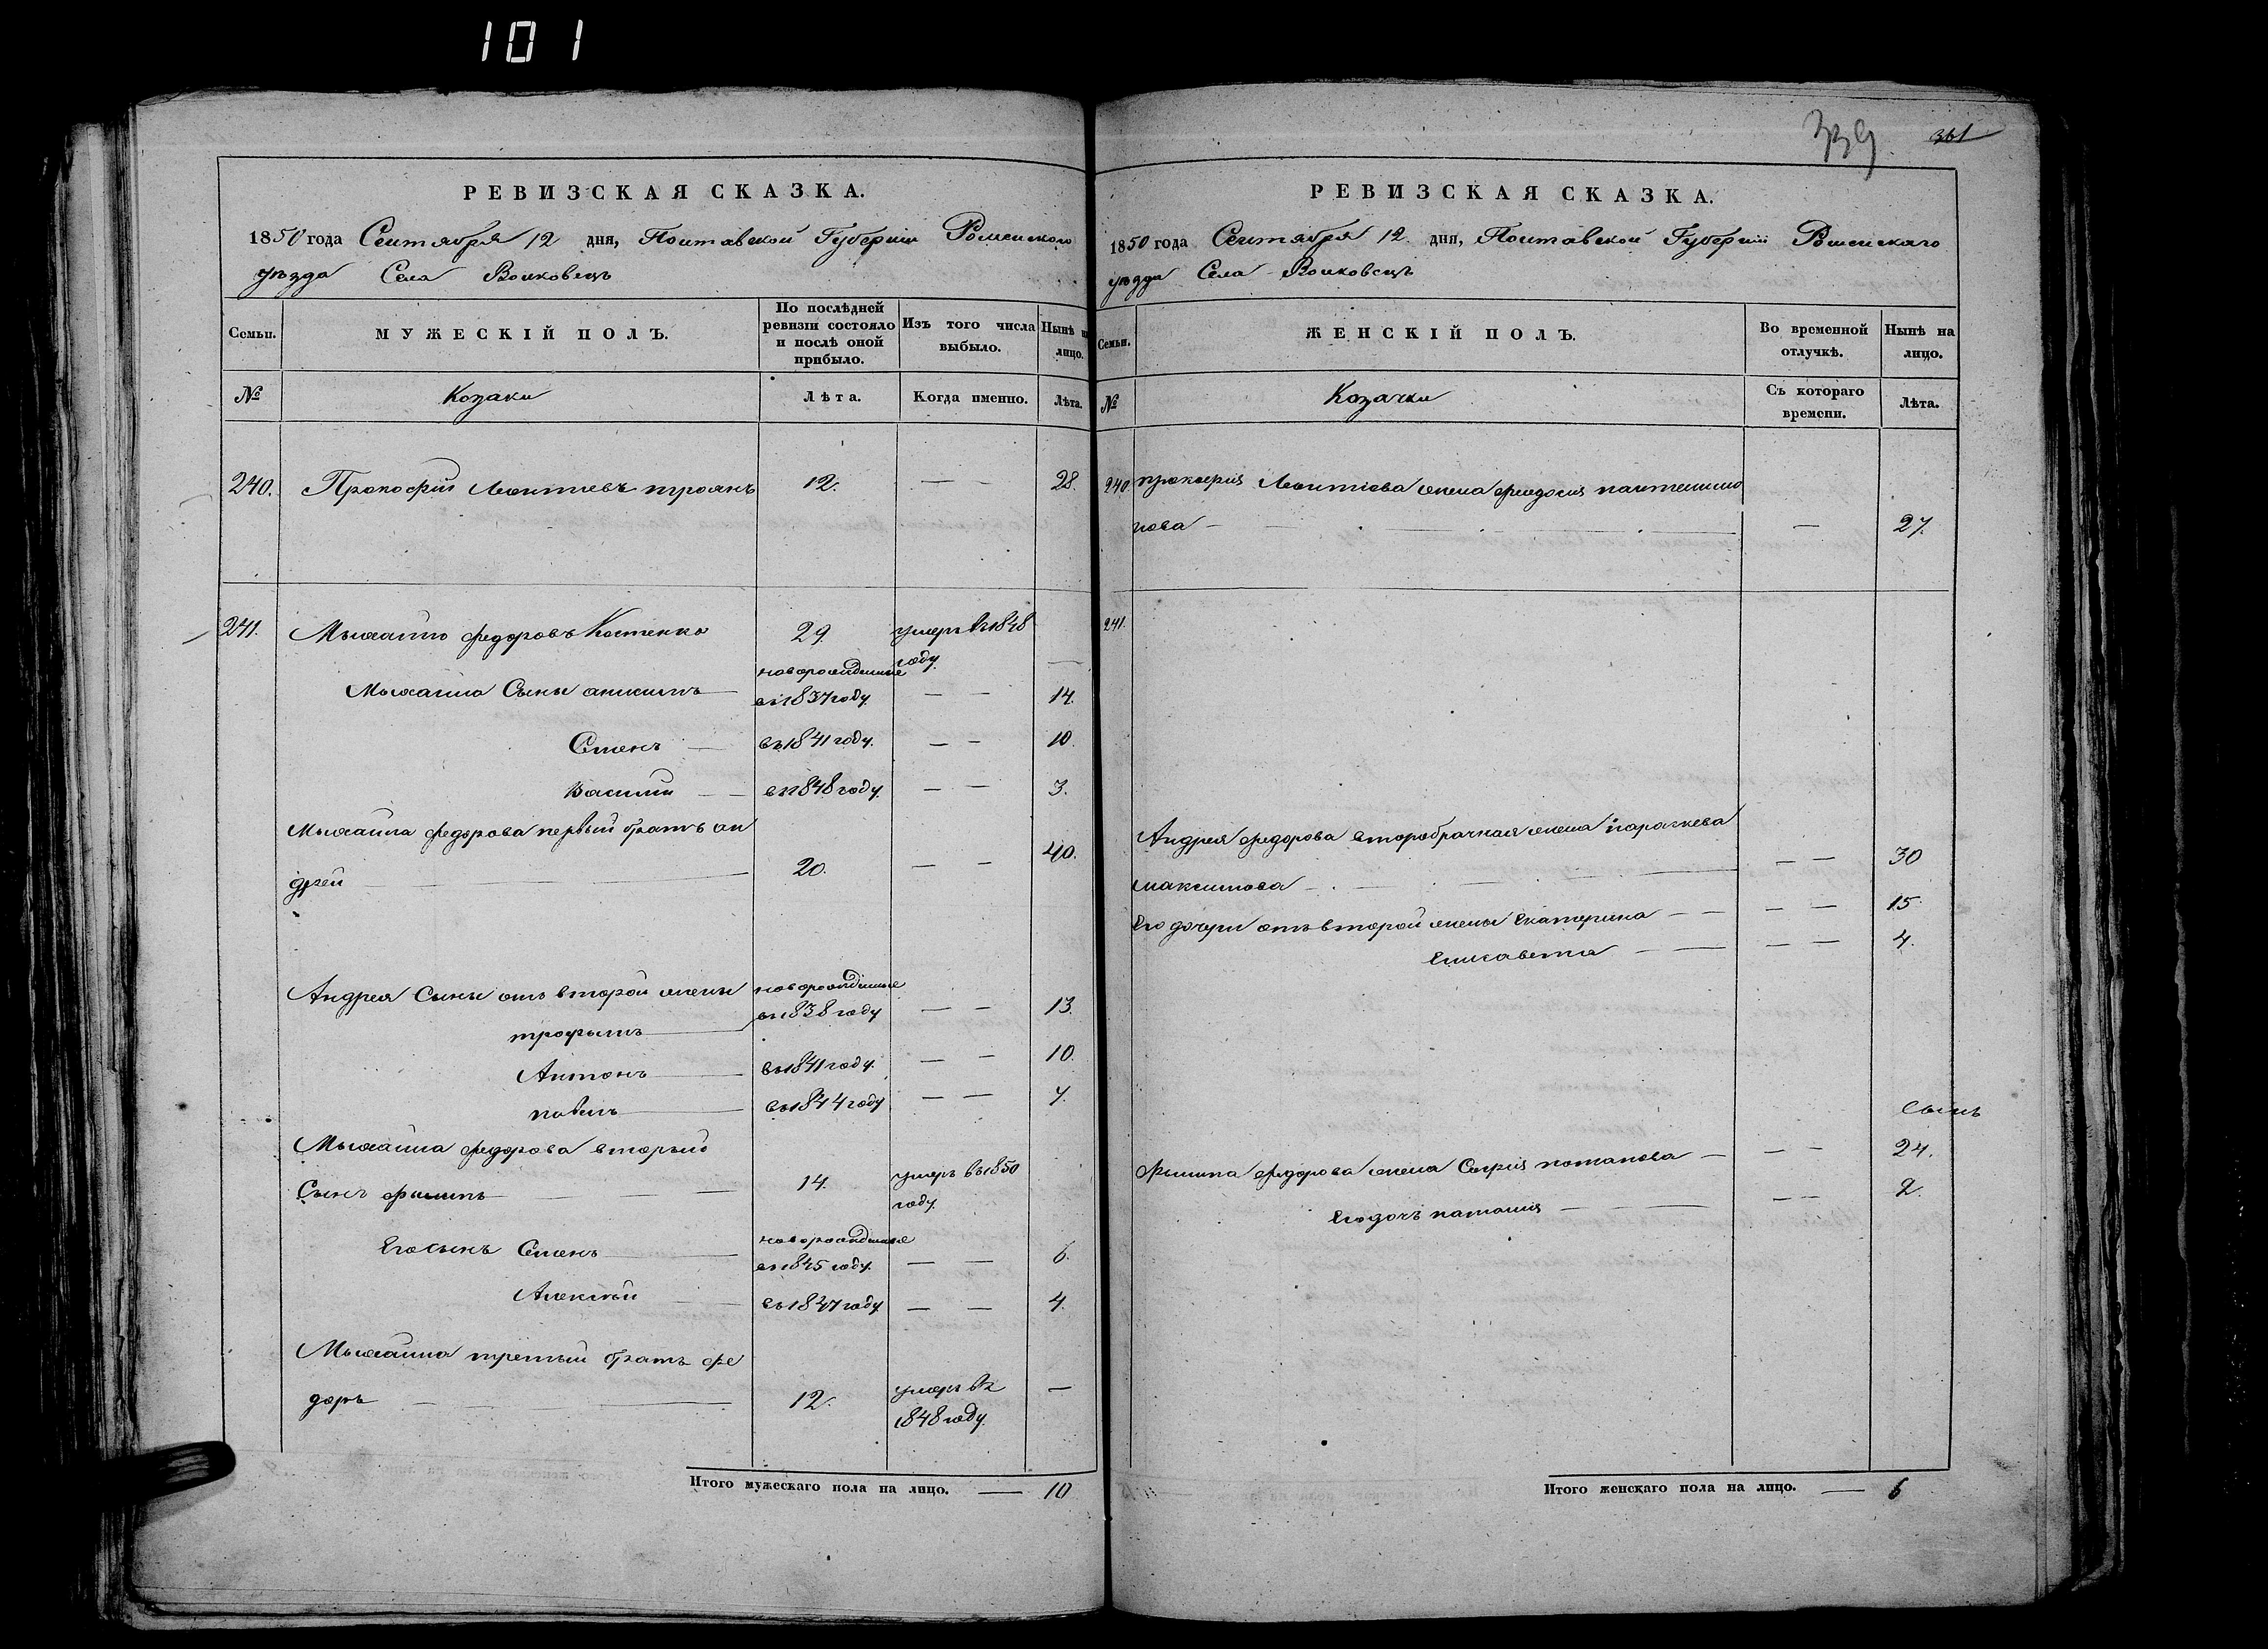 101
РЕВИЗСКАЯ СКАЗКА.
1850 года Сентября 12 дня, Полтавской Губерніи Роменского
уѣзда Села Волковецъ
Семьи.
МУЖЕСКІЙ ПОЛЪ.
По послѣдней ревизіи состояло и послѣ оной прибыло.
Изъ того числа выбыло.
Нынѣ на лицо.
№
Козаки
Лѣта.
Когда именно.
Лѣта.
240. Прокофій Леонтіевъ Троянъ 12. — — 28.
241. Мыхайло Федоровъ Костенко 29. умеръ въ 1848 году. —
Мыхайла Сыны Анисимъ новорожденные въ 1837 году. — — 14.
Семенъ — въ 1841 году. — — 10.
Василій — въ 1848 году. — — 3.
Мыхайла Федорова первый братъ Ан
дрей 20. — — 40.
Андрея Сыны отъ второй жены новорожденные
Трофымъ въ 1838 году — — 13.
Антонъ въ 1841 году. — — 10.
Павелъ въ 1844 году — — 7.
Мыхайла Федорова вторый
Сынъ Филипъ 14. умеръ въ 1850 году.
Его сынъ Семенъ новорожденные въ 1845 году. — — 6.
Алексѣй въ 1847 году — — 4.
Мыхайла третый братъ Фе
доръ 12. умеръ въ 1848 году. —
Итого мужескаго пола на лицо. — 10
339 361
РЕВИЗСКАЯ СКАЗКА.
1850 года Сентября 12. дня, Полтавской Губерніи Роменскаго
уѣзда Села Волковецъ
Семьи.
ЖЕНСКІЙ ПОЛЪ.
Во временной отлучкѣ.
Нынѣ на лицо.
№
Козачки
Съ котораго времени.
Лѣта.
240. Прокофія Леонтіева жена Феодосія Пантелимо
нова — — 27.
241.
Андрея Федорова второбрачная жена Параскева
Максимова — — 30
Его дочери отъ второй жены Екатерина — — 15.
Елисавета — — 4.
Филипа Федорова жена Софія Потапова — — 24.
Его дочь Наталія — — 2.
Итого женскаго пола на лицо. — 6